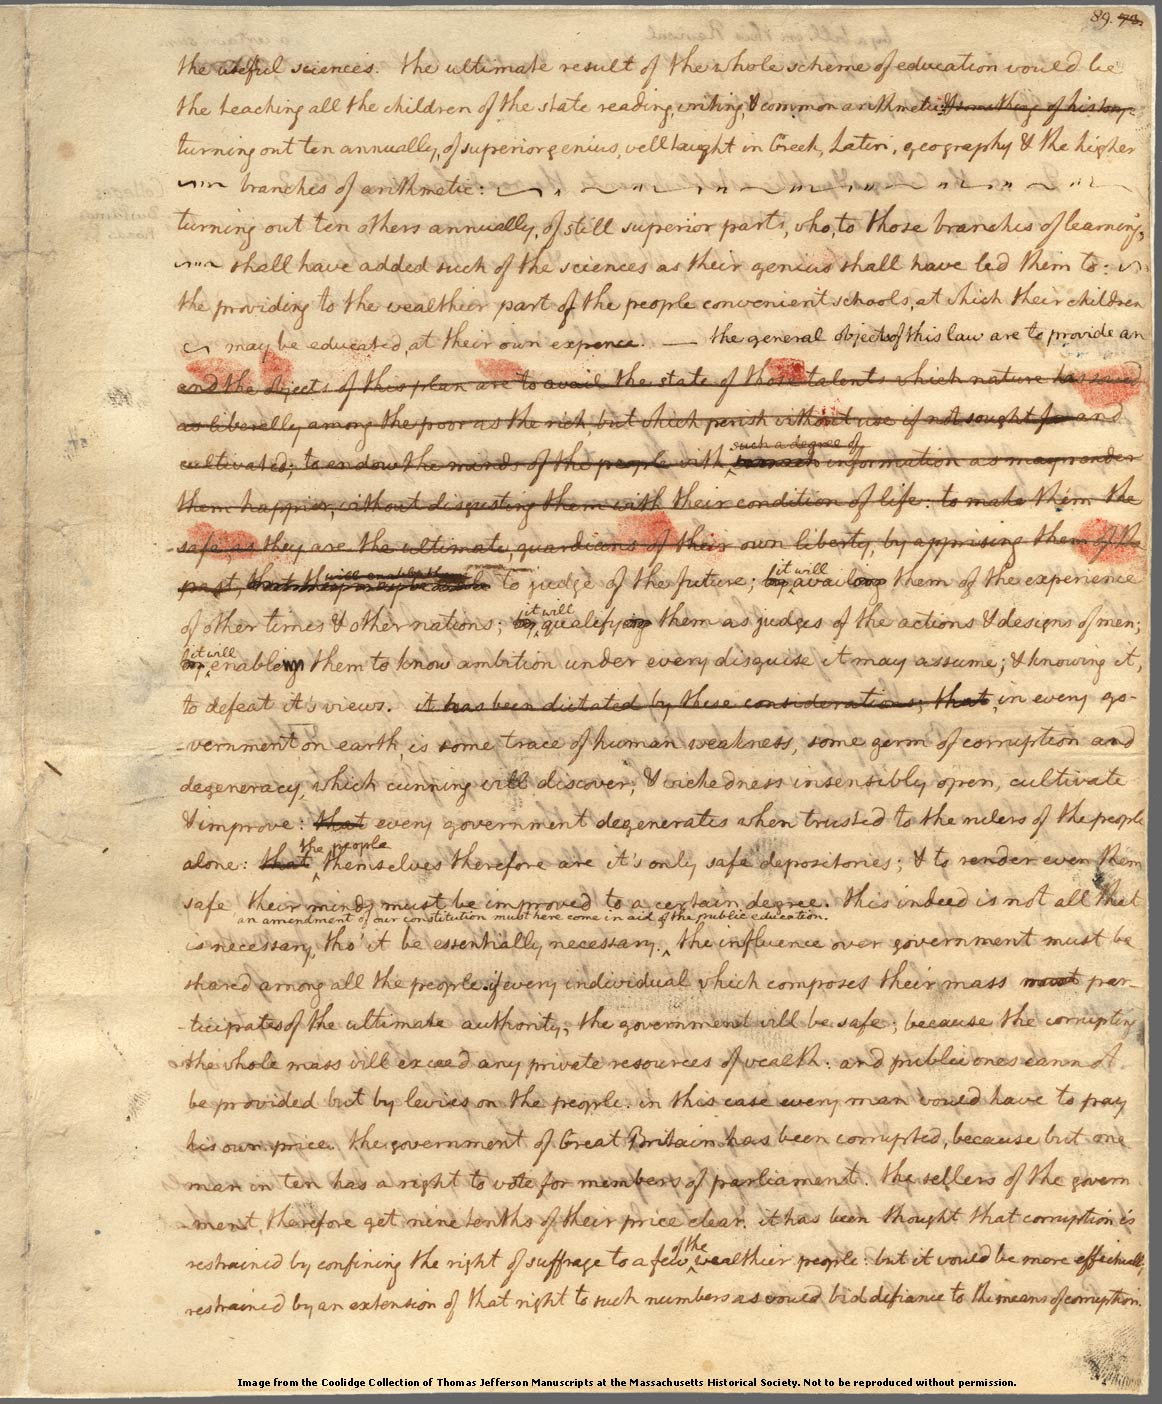 89. 73.
the useful sciences. the ultimate result of the whole scheme of education would be
the teaching all the children of the state reading, writing, & common arithmetic: & something of history
turning out ten annually, of superior genius, well taught in Greek, Latin, geography & the higher
branches of arithmetic:
turning out ten others annually, of still superior parts, who, to those branches of learning,
shall have added such of the sciences as their genius shall have led them to:
the providing to the wealthier part of the people convenient schools, at which their children
may be educated, at their own expence. — the general objects of this law are to provide an
and the objects of this plan are to avail the state of those talents which nature has sowed
as liberally among the poor as the rich, but which perish without use if not sought for and
such a degree of
cultivated; to endow the minds of the people with information as may render
them happier, without disgusting them with their condition of life: to make them the
safe, as they are the ultimate, guardians of their own liberty, by apprising them of the
will enable them
past, that they may be able to judge of the future; by it will availing them of the experience
of other times & other nations; by it will qualifying them as judges of the actions & designs of men;
by it will enabling them to know ambition under every disguise it may assume; & knowing it,
to defeat it's views. it has been dictated by these considerations; that in every go-
-vernment on earth, is some trace of human weakness, some germ of corruption and
degeneracy, which cunning will discover, & wickedness insensibly open, cultivate
& improve: that every government degenerates when trusted to the rulers of the people
the people
alone: that themselves therefore are it's only safe depositories; & to render even them
safe their minds must be improved to a certain degree. this indeed is not all that
an amendment of our constitution must here come in aid of the public education.
is necessary, tho' it be essentially necessary. the influence over government must be
shared among all the people. if every individual which composes their mass must par-
-ticipates of the ultimate authority, the government will be safe; because the corrupting
the whole mass will exceed any private resources of wealth: and public ones cannot
be provided but by levies on the people. in this case every man would have to pay
his own price. the government of Great Britain has been corrupted, because but one
man in ten has a right to vote for members of parliament. the sellers of the govern-
-ment therefore get nine tenths of their price clear. it has been thought that corruption is
of the
restrained by confining the right of suffrage to a few wealthier people: but it would be more effectually
restrained by an extension of that right to such numbers as would bid defiance to the means of corruption.
Image from the Coolidge Collection of Thomas Jefferson Manuscripts at the Massachusetts Historical Society. Not to be reproduced without permission.